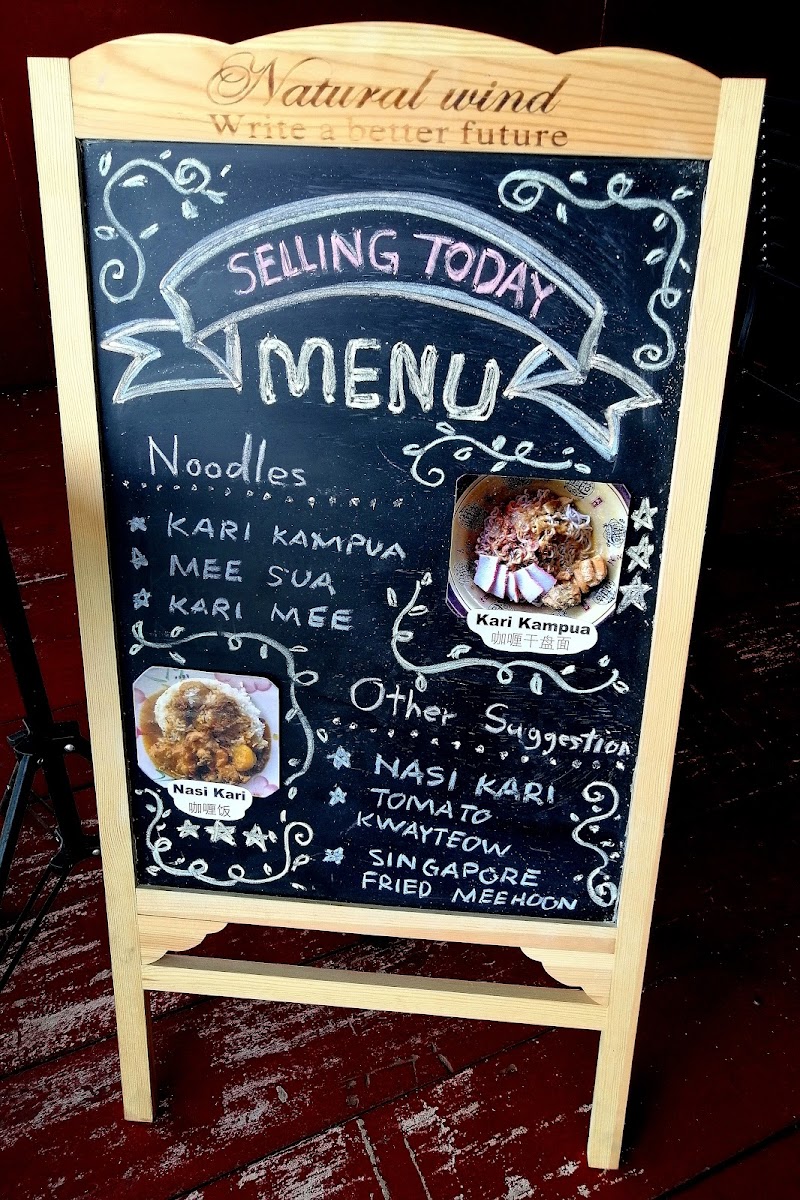 Natural wind
Write a better future
SELLING TODAY
MENU
Noodles
KARI KAMPUA
MEE SUA
KARI MEE
Kari Kampua
咖喱干盘面
Nasi Kari
咖喱饭
Other Suggestion
NASI KARI
TOMATO
KWAYTEOW
SINGAPORE
FRIED MEEHOON